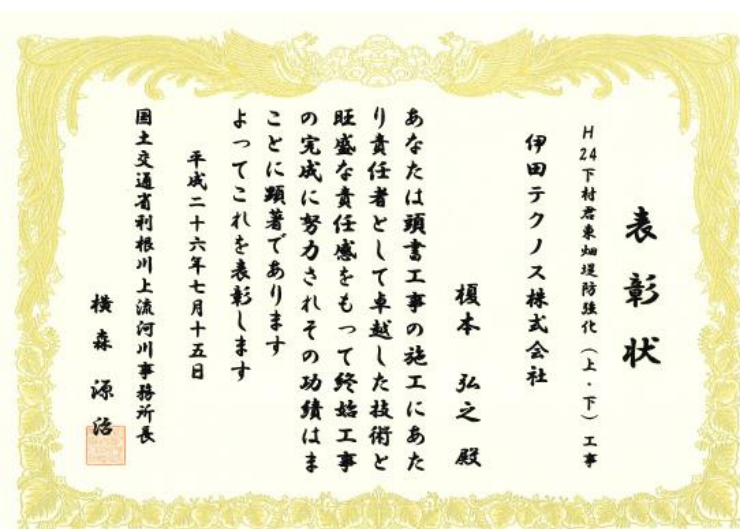 表彰状
H24下村君東畑堤防強化（上・下）工事
伊田テクノス株式会社
榎本 弘之 殿
あなたは頭書工事の施工にあた
り責任者として卓越した技術と
旺盛な責任感をもって終始工事
の完成に努力されその功績はま
ことに顕著であります
よってこれを表彰します
平成二十六年七月十五日
国土交通省利根川上流河川事務所長
横森 源治